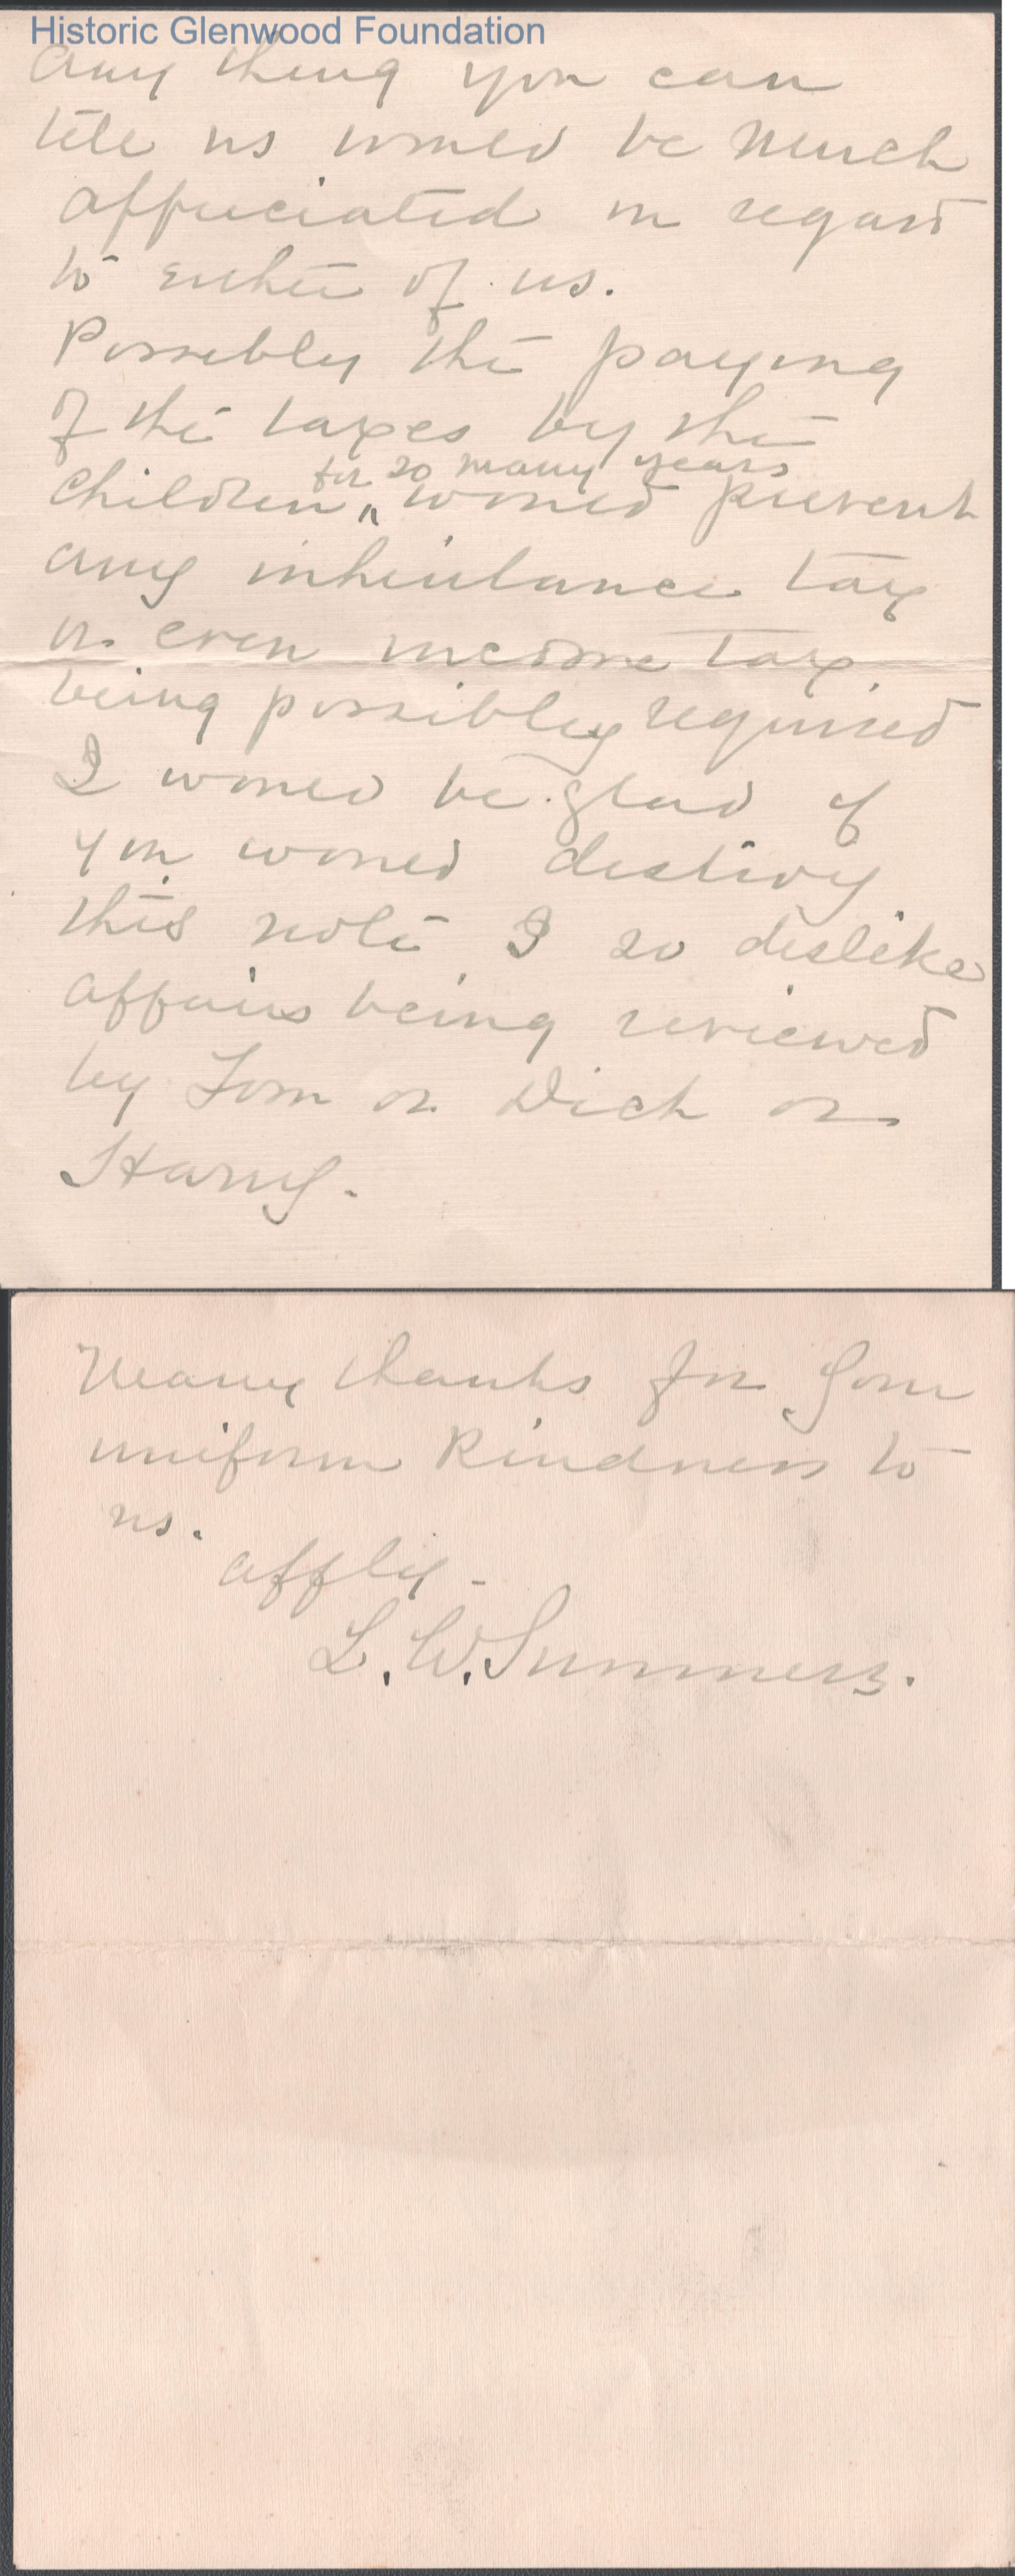 Historic Glenwood Foundation
Any thing you can
tell us would be much
appreciated in regard
to either of us.
Possibly the paying
of the taxes by the
for so many years
children ^ would prevent
any inheritance tax
or even income tax
being possibly required
I would be glad if
you would destroy
this note I so dislike
affairs being reviewed
by Tom or Dick or
Harry.
Many thanks for your
uniform kindness to
us.
affly -
L. W. Summers.